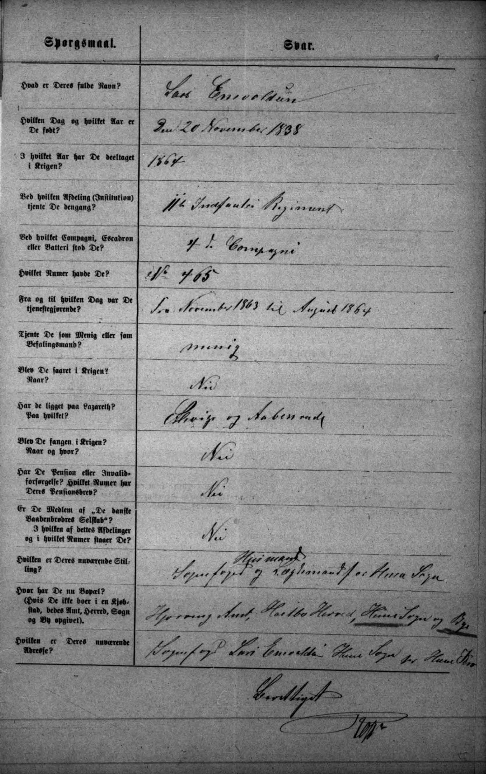 Spørgsmaal. Svar.
Hvad er Deres fulde Navn? Lars Envoldsen
Hvilken Dag og hvilket Aar er
De født? den 20 November 1838
I hvilket Aar har De deeltaget
i Krigen? 1864
Ved hvilken Afdeling (Institution)
tjente De dengang? 11te Infanteri Regiment
Ved hvilket Compagni, Escadron
eller Batteri stod De? 4de Compagni
Hvilket Numer havde De? No 465
Fra og til hvilken Dag var De
tjenestegjørende? Fra November 1863 til August 1864
Tjente De som Menig eller som
Befalingsmand? menig
Blev De saaret i Krigen?
Naar? Nei
Har De ligget paa Lazareth?
Paa hvilket? og Aabenraade
Blev De fangen i Krigen?
Naar og hvor? Nei
Har De Pension eller Invalid-
forsørgelse? Hvilket Numer har
Deres Pensionsbrev? Nei
Er De Medlem af „De danske
Vaabenbrødres Selskab"?
I hvilken af dettes Afdelinger
og i hvilket Numer staaer De? Nei
Hvilken er Deres nuværende Stil-
ling? Huusmand
Sognefoged og Lægdsmand for Hune Sogn
Hvor har De nu Bopæl?
(Hvis De ikke boer i en Kjøb-
stad, bedes Amt, Herred, Sogn
og By opgivet). Hjørring Amt, Hvetbo Herred, Hune Sogn og By
Hvilken er Deres nuværende
Adresse? Sognefoged Lars Envoldsen Hune Sogn pr Hune
Berettiget